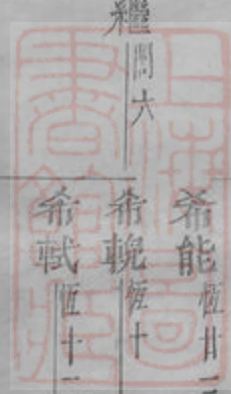 繼 開六
希能 恆廿
希輗 恆十
希軾 恆十一
上海圖書館藏